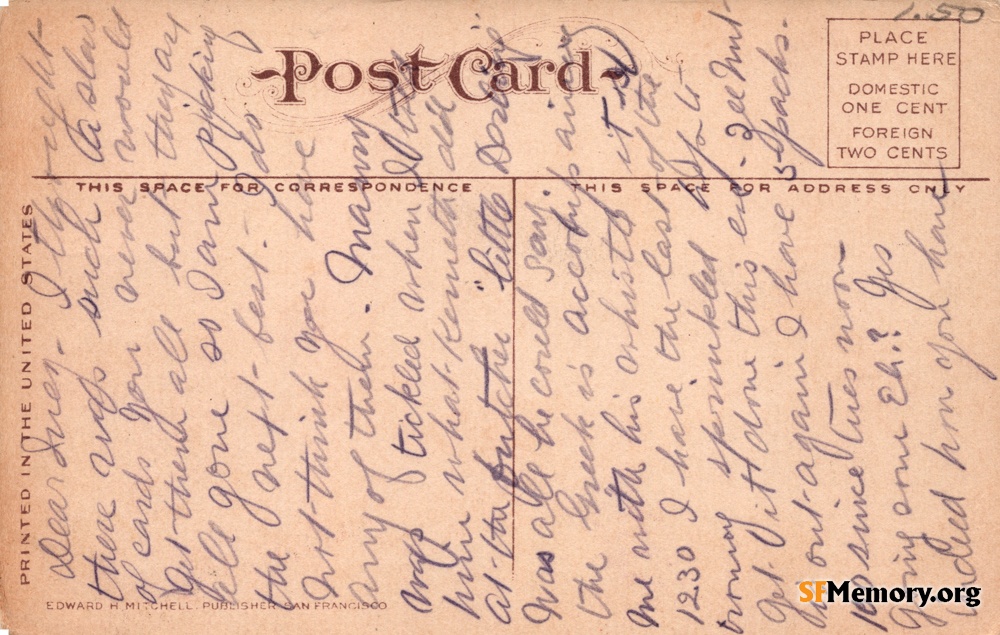 1.50
Post Card
PLACE
STAMP HERE
DOMESTIC
ONE CENT
FOREIGN
TWO CENTS
THIS SPACE FOR CORRESPONDENCE
THIS SPACE FOR ADDRESS ONLY
PRINTED IN THE UNITED STATES
EDWARD H. MITCHELL, PUBLISHER, SAN FRANCISCO.
Dear I tho right
there was such a slew
of cards you never would
get them all but they are
all gone so I am picking
the next best - I do
not think you have
any of them. Mammy
was tickled when I told
him what Kenneth did
at the butcher little
was all he could say.
the Greek is accompaning
me with his whistle it is
1230 I have the last of the
ironing sprinkled &
get it done this eve
out again I have 5 packs.
10 since tues noon
going some Eh? Yes
indeed hon you have
SFMemory.org